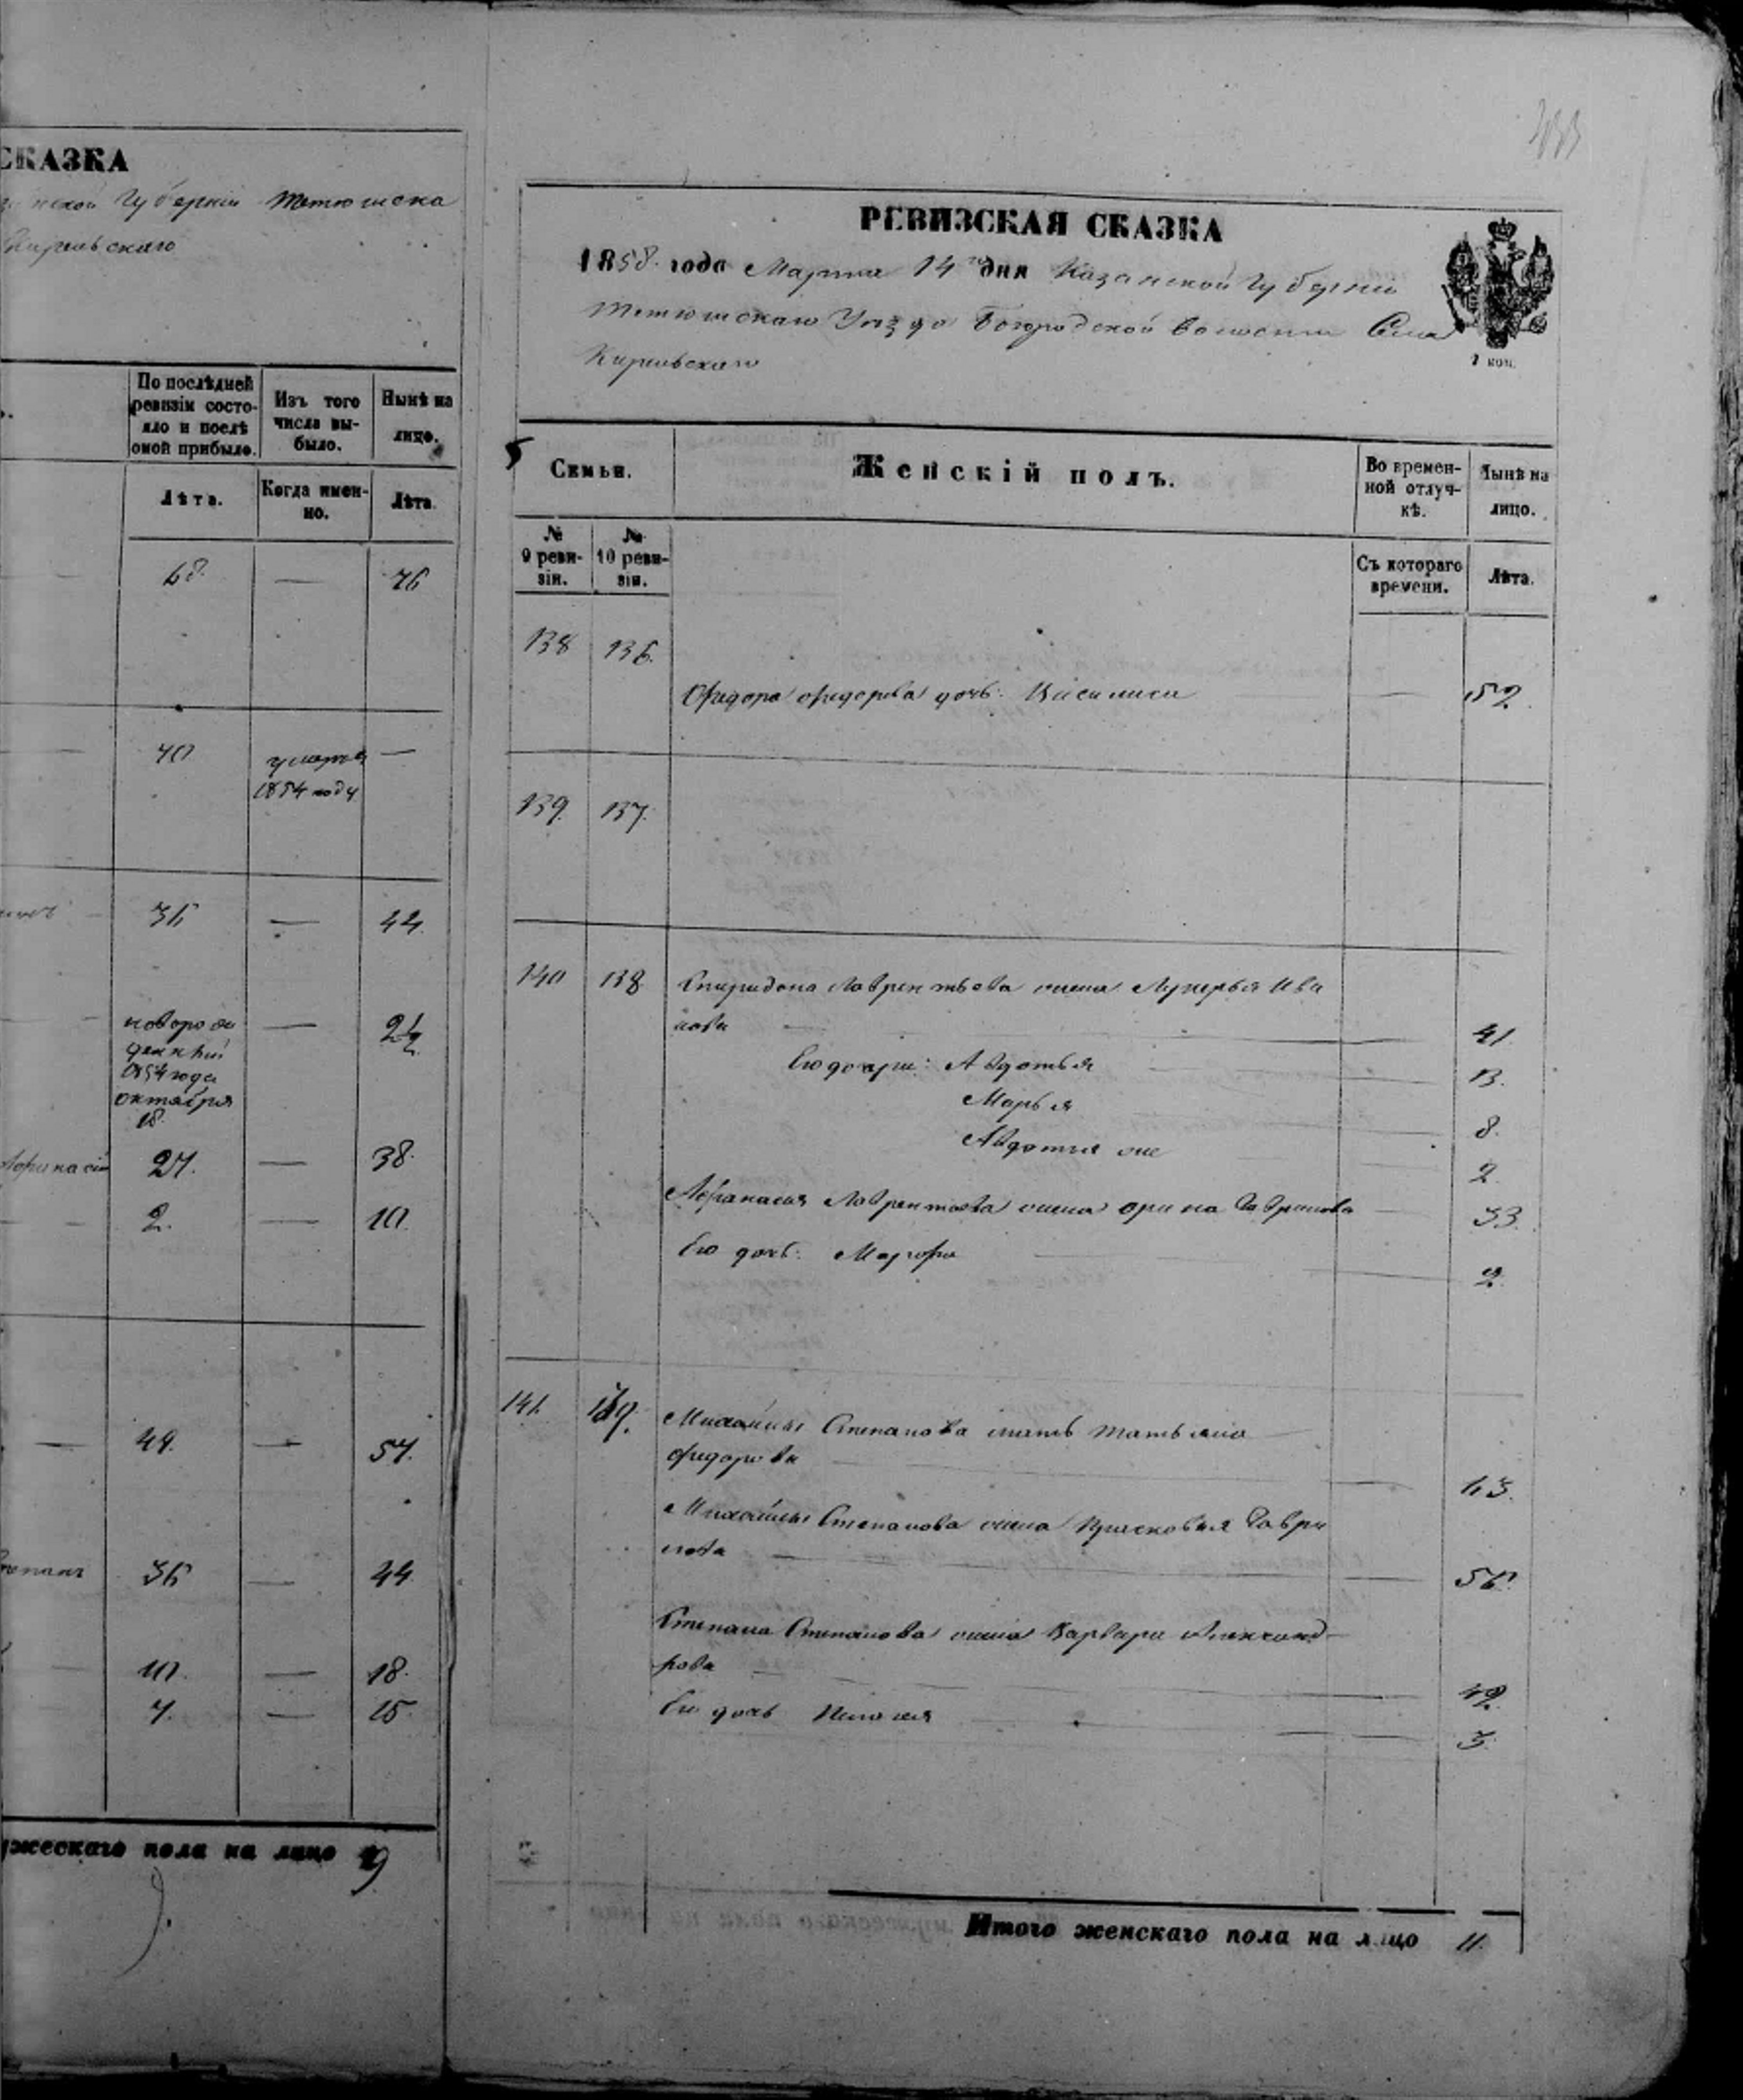 СКАЗКА
Губерніи Тетюшска
Кирельскаго
По послѣдней
ревизіи состо-
яло и послѣ
оной прибыло.
Изъ того
числа вы-
было.
Нынѣ на
лицо.
Лѣта.
Когда имен-
но.
Лѣта.
68. — 76
40 умеръ —
1854 году
36 — 44
новорож
денный — 2½
1854 года
октября
18.
Афанасій 27. — 38.
2. — 10
49. — 57.
Степанъ 36 — 44
10. — 18.
7. — 15.
жескаго пола на лицо 9
433
РЕВИЗСКАЯ СКАЗКА
1858. года Марта 14го дня Казанской Губерніи
Тетюшскаго Уѣзда Богородской волости Села
Кирельскаго
1 коп.
Семьи.
Женскій полъ.
Во времен-
ной отлуч-
кѣ.
Нынѣ на
лицо.
№
9 реви-
зіи.
№
10 реви-
зіи.
Съ котораго
времени.
Лѣта.
138 136.
Федора Федорова дочь: Василиса — 52.
139. 137.
140 138 Спиридона Лаврентьева жена Лукерья Ива
нова — 41
Его дочери: Авдотья — 13.
Марья — 8.
Авдотья же — 2.
Афанасья Лаврентьева жена Орина Гаврилова — 33.
Его дочь: — 2.
141. 139. Михайлы Степанова мать Татьяна
Федорова — 63.
Михайлы Степанова жена Прасковья Гаври
лова — 56.
Степана Степанова жена Варвара Александ-
рова — 42.
Его дочь — 3.
Итого женскаго пола на лицо 11.